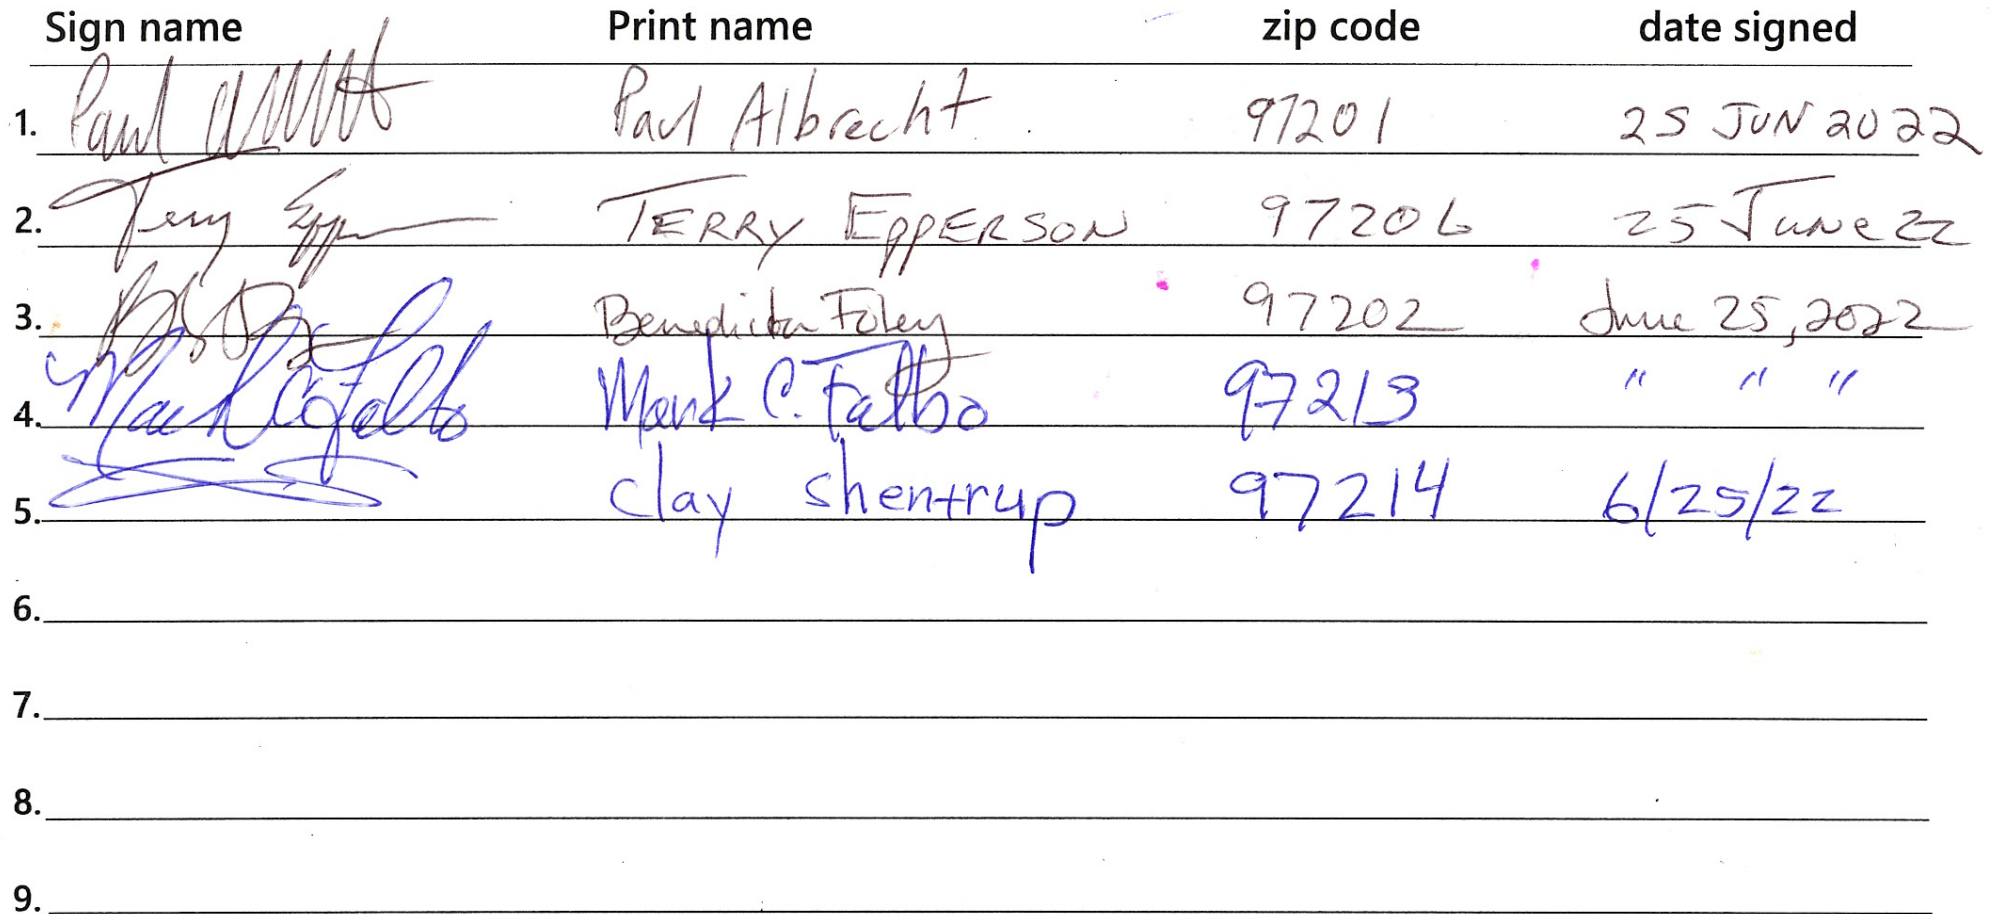 Sign name Print name zip code date signed
1. Paul Paul Albrecht 97201 25 JUN 2022
2. Terry TERRY EPPERSON 97206 25 June 22
3. Benedicta Foley 97202 June 25, 2022
4. Mark C Falbo Mark C. Falbo 97213 " " "
5. clay shentrup 97214 6/25/22
6.
7.
8.
9.